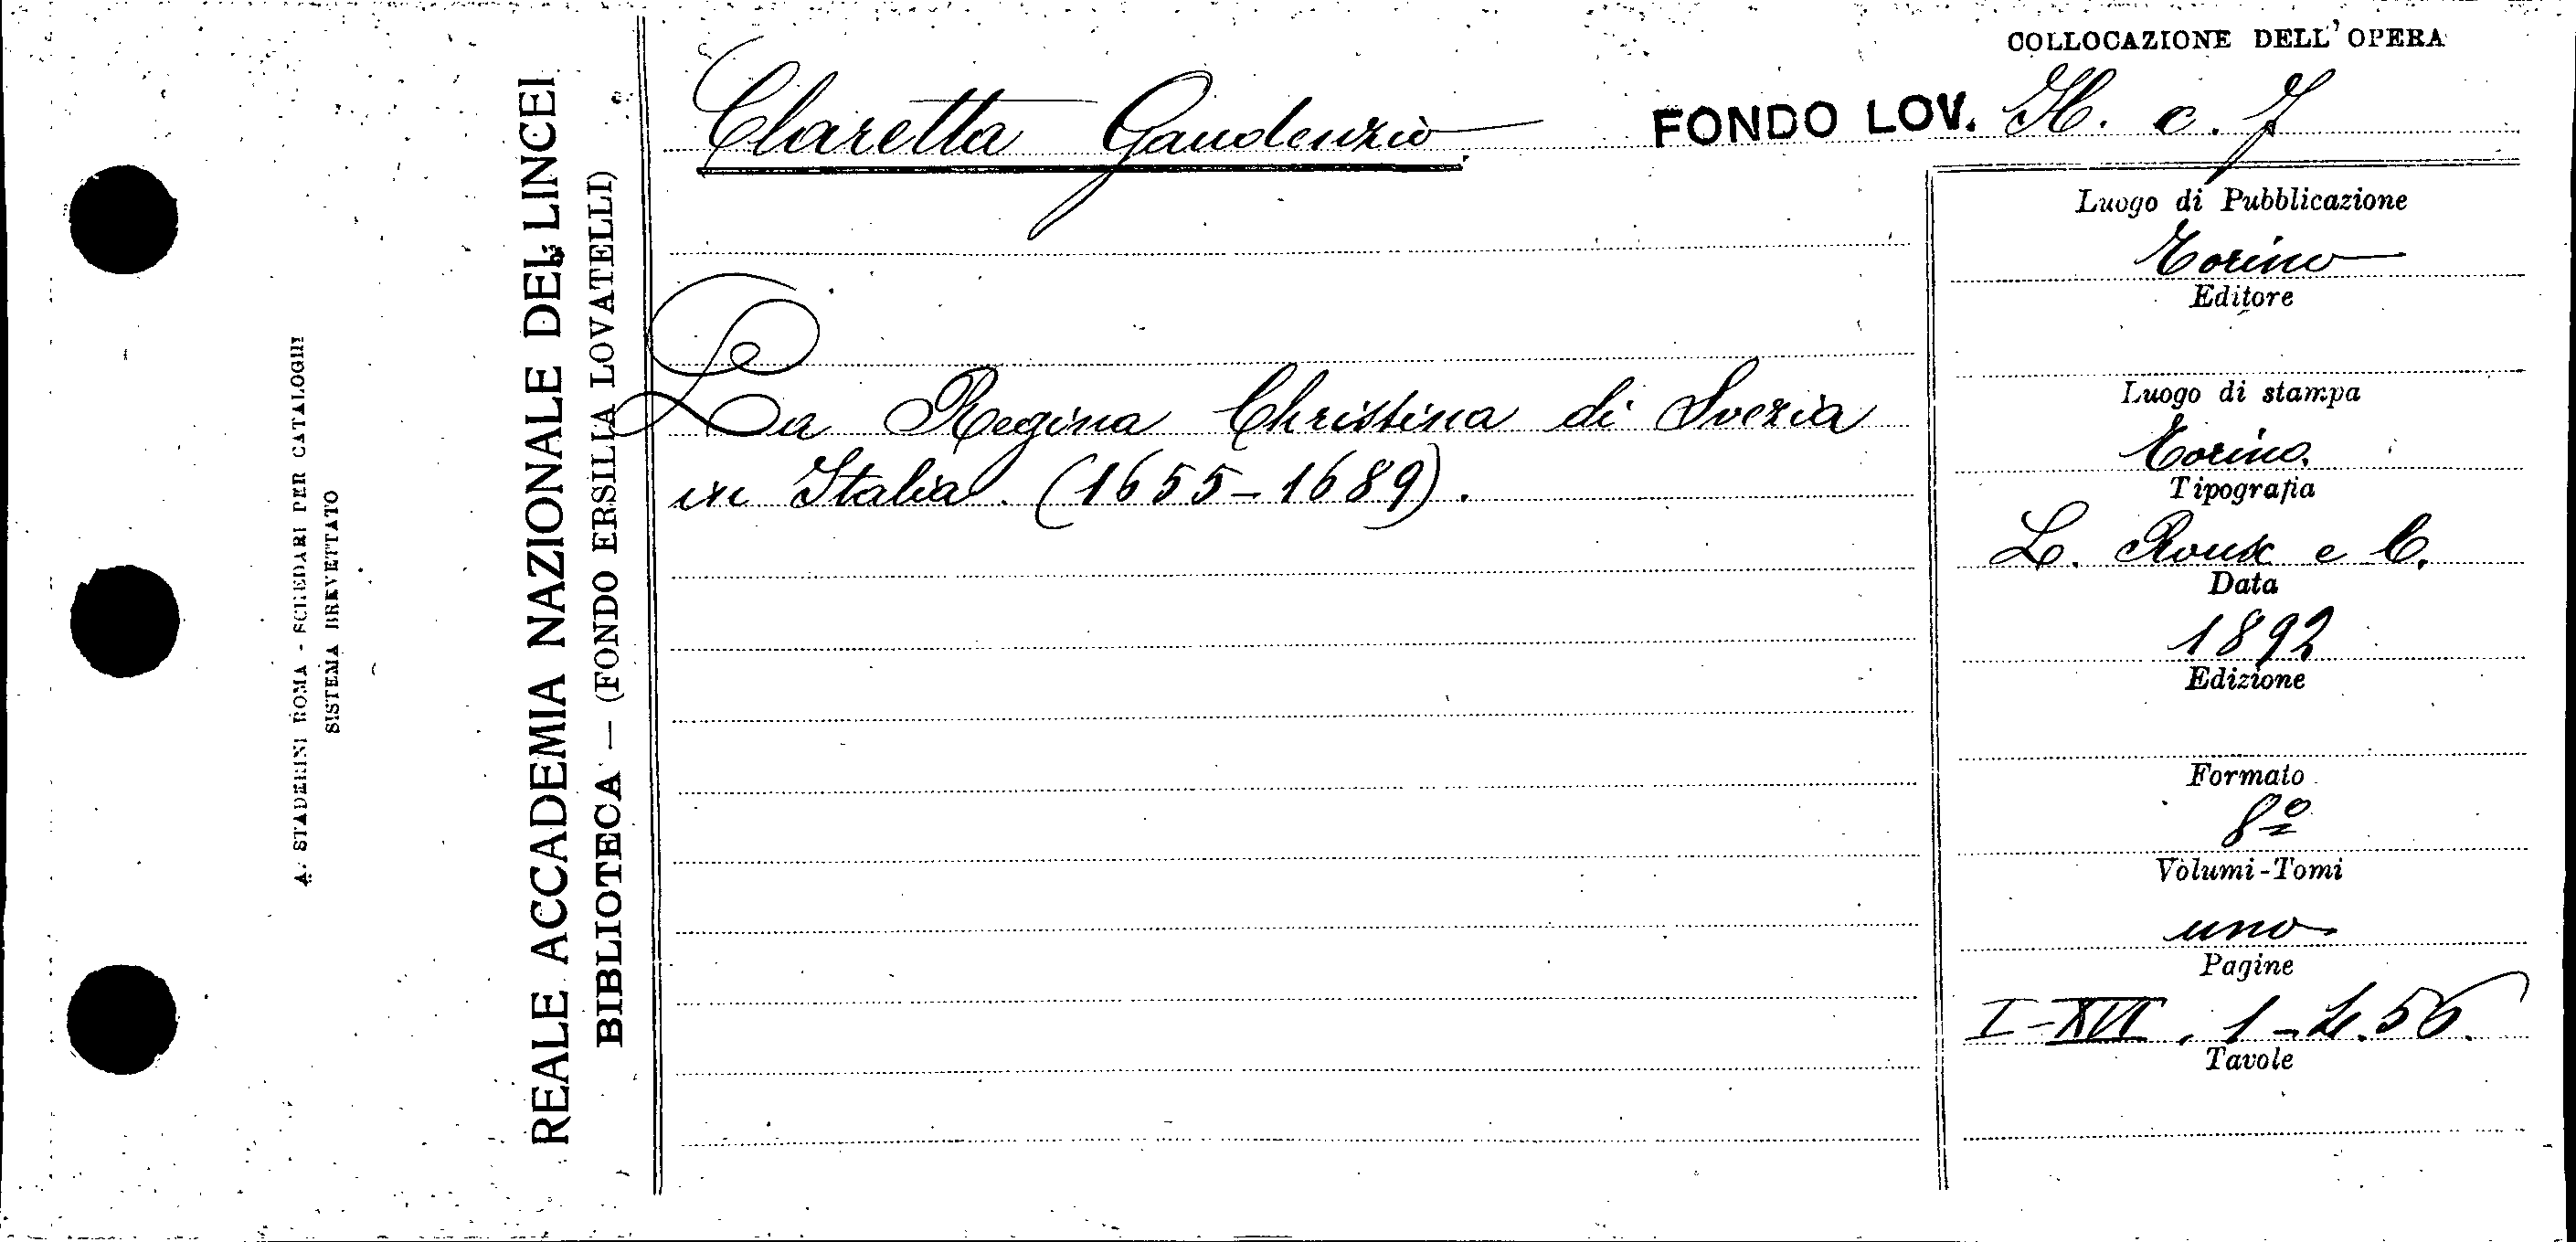 COLLOCAZIONE DELL'OPERA
Claretta Gaudenzio
FONDO LOV. H. c. 7
La Regina Christina di Svezia
in Italia. (1655-1689).
Luogo di Pubblicazione
Torino
Editore
Luogo di stampa
Torino.
Tipografia
L. Roux e C.
Data
1892
Edizione
Formato
8º
Volumi-Tomi
uno
Pagine
I-XVI, 1-456.
Tavole
REALE ACCADEMIA NAZIONALE DEI LINCEI
BIBLIOTECA — (FONDO ERSILIA LOVATELLI)
A. STADERINI ROMA - SCHEDARI PER CATALOGHI
SISTEMA BREVETTATO